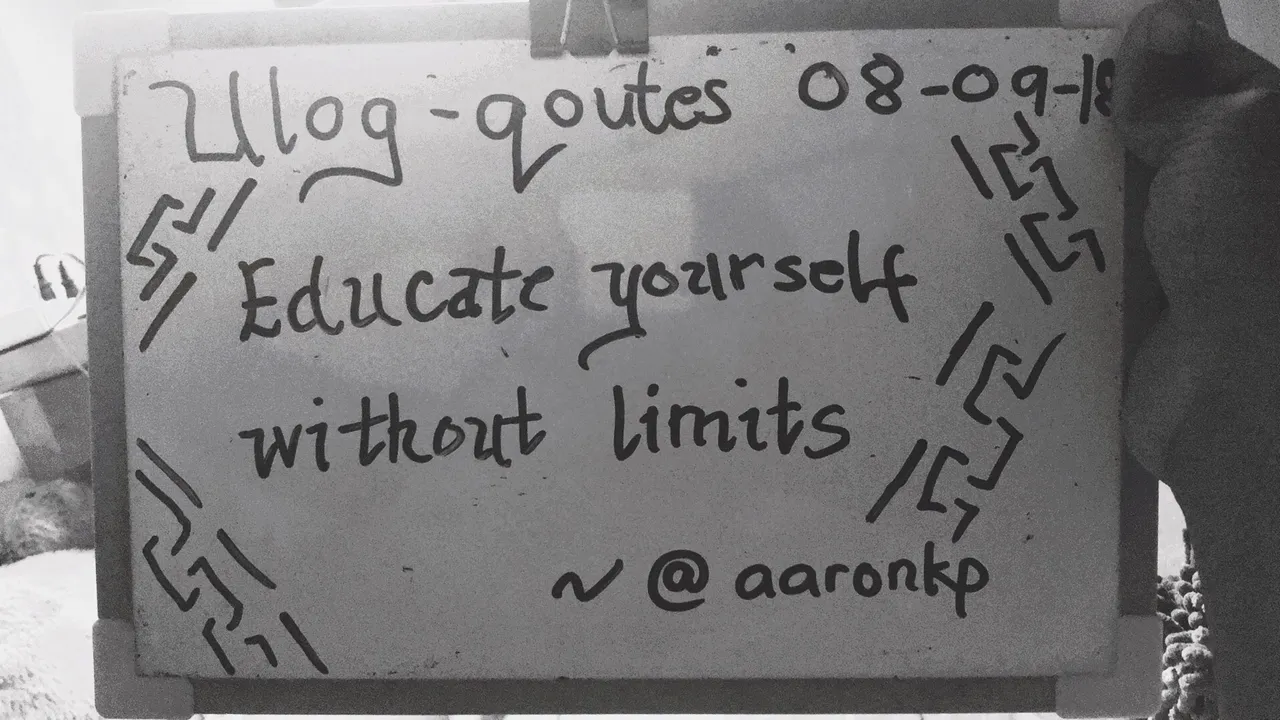 Ulog-qoutes 08-09-18
Educate yourself
without limits
~ @aaronkp